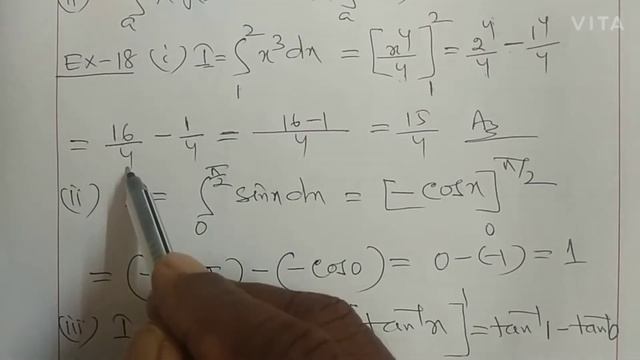 VITA
Ex-18 (i) I = ∫₁² x³dx = [x⁴/4]₁² = 2⁴/4 - 1⁴/4
= 16/4 - 1/4 = 16-1/4 = 15/4 Ans
(ii) = ∫₀^π/2 sinx dx = [-cosx]₀^π/2
= (- ) - (-cos0) = 0-(-1) = 1
(iii) I tan⁻¹x]¹ = tan⁻¹1 - tan⁻¹0